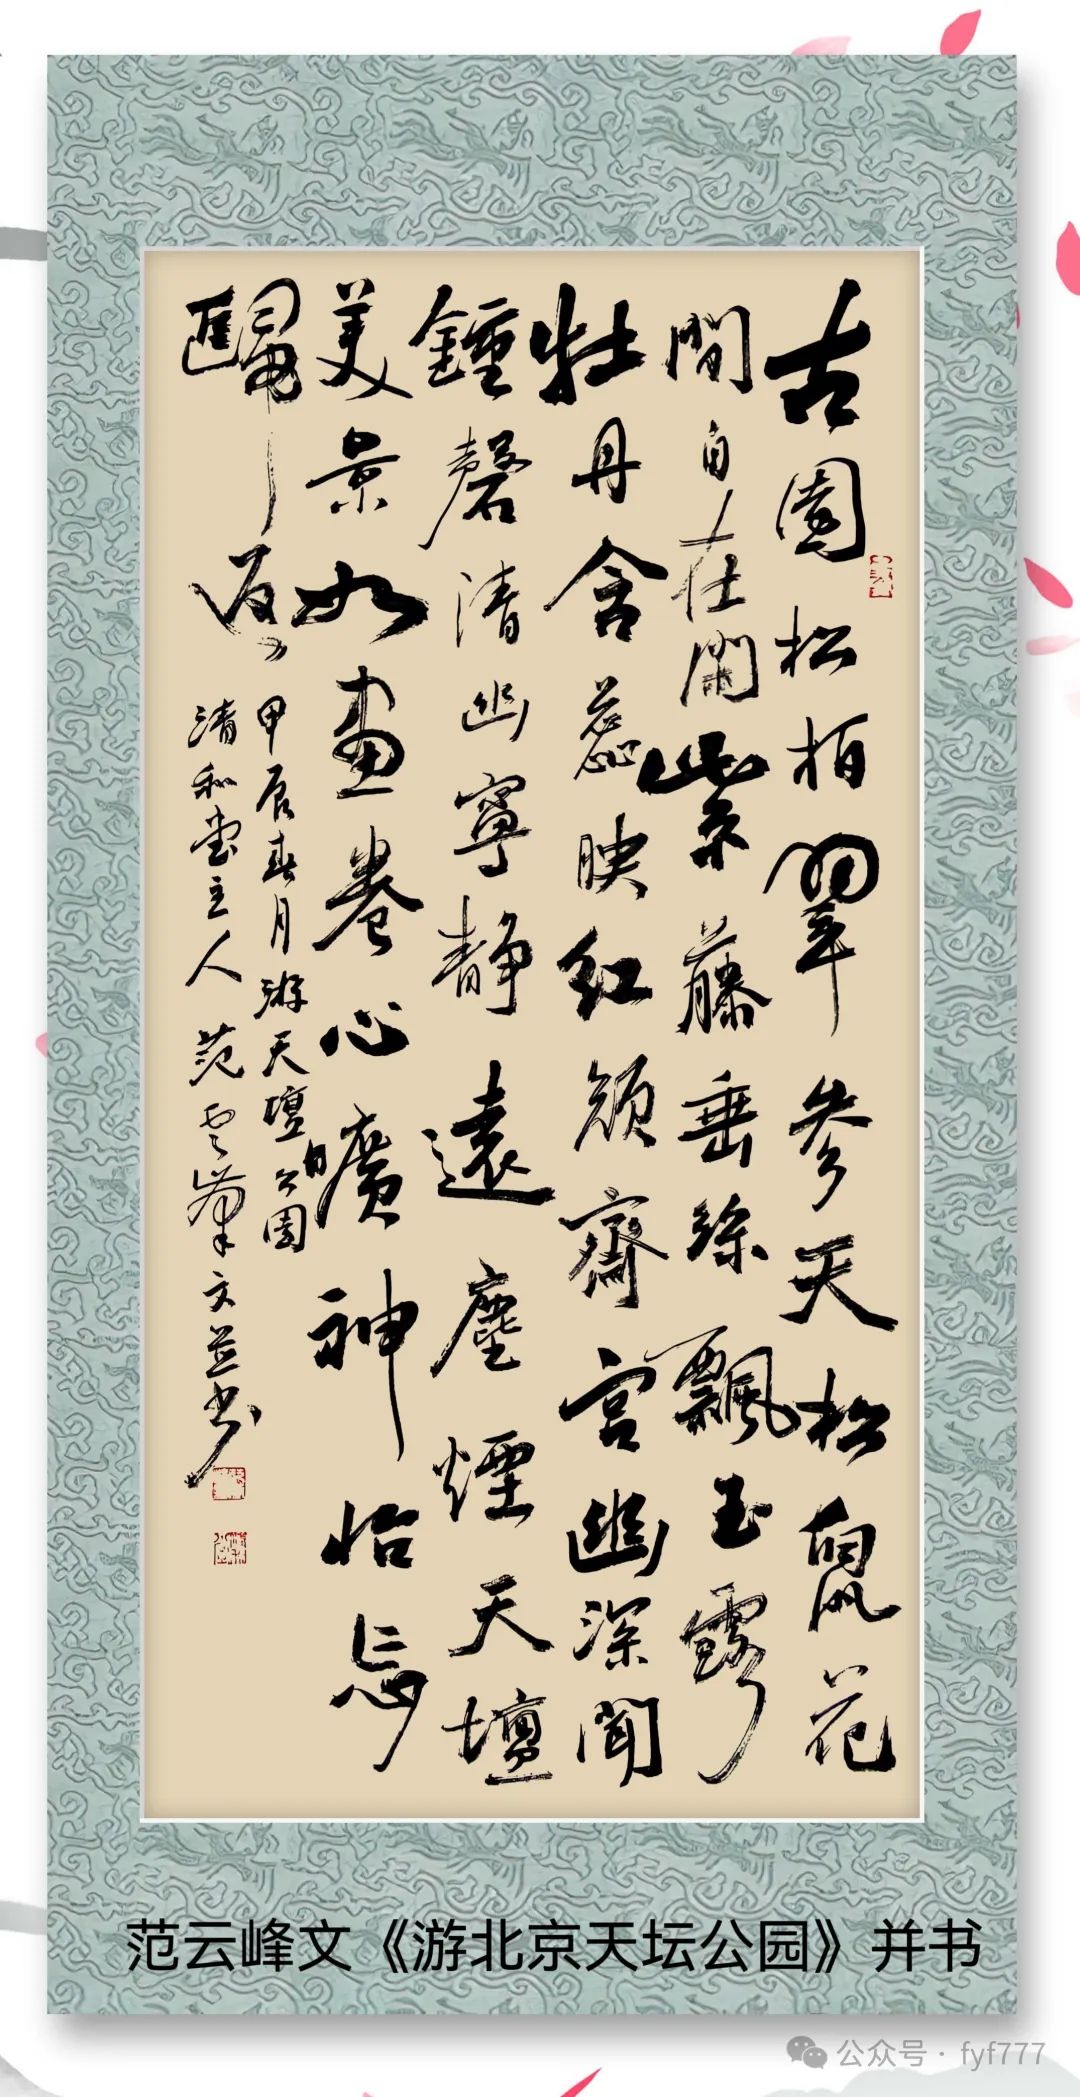 古園松柏翠參天松鼠花
間自在閙紫藤垂絲飄玉露
牡丹含蕊映紅顔齋宮幽深聞
鍾磬清幽寧靜遠塵煙天壇
美景如畫卷心曠神怡忘
歸返
甲辰春月游天壇公園
清和堂主人范雲峯文並书
范云峰文《游北京天坛公园》并书
公众号·fyf777